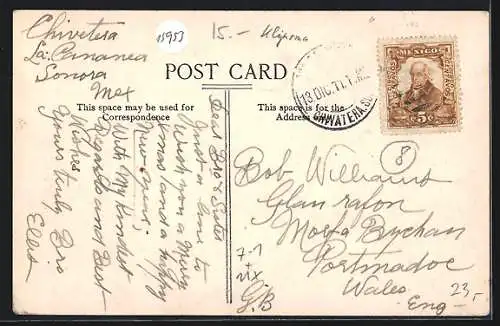 Chivetera
La Cananea
Sonora
Mex
15953
15.-
POST CARD
This space may be used for
Correspondence
This space is for the
Address
13 DIC. 11.
CHIVATERA
MEXICO
5¢
8
Dear Bro & Sister
Just a line to
Wish you a Merry
Xmas and a happy
New year.
With my kindest
Regards and Best
Wishes
Yours truly Bro
Ellis
Bob Williams
Glan rafon
Morfa Bychan
Portmadoc
Wales
Eng
G.B
23,-